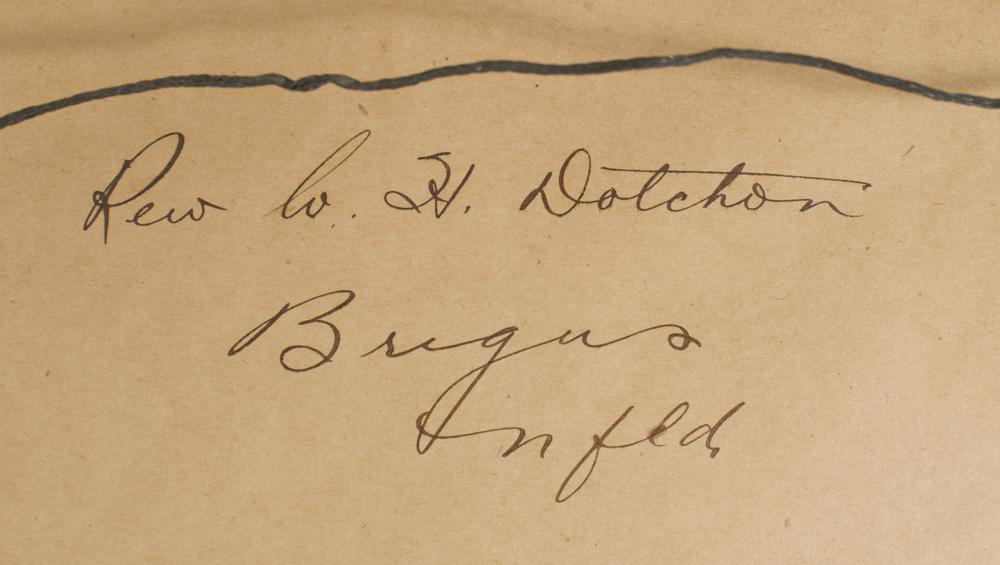 Rev W. H. Dotchon
Brigus
Nfld.